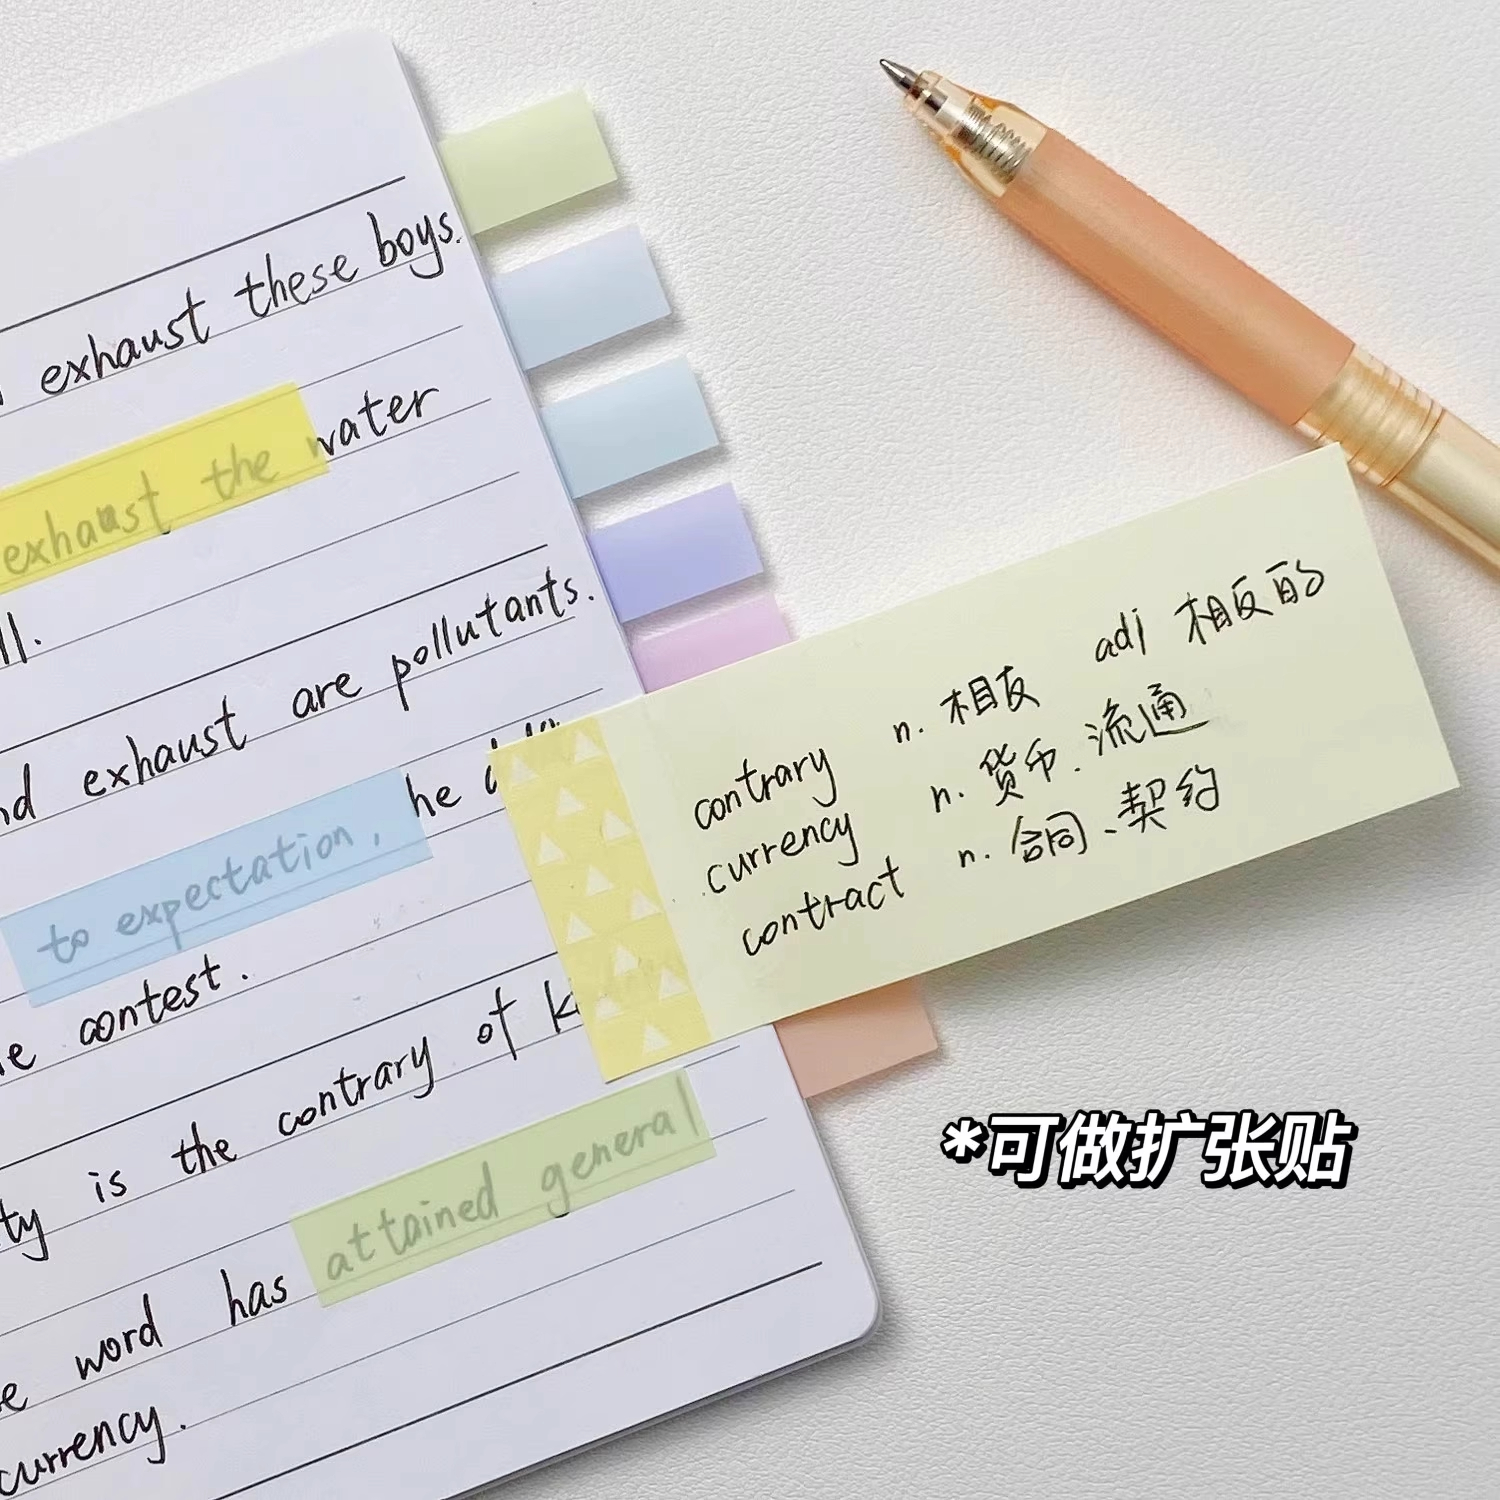 exhaust these boys.
exhaust the water
ll.
nd exhaust are pollutants.
to expectation, he
e contest.
ty is the contrary of k
e word has attained general
currency.
contrary n. 相反 adj 相反的
currency n. 货币、流通
contract n. 合同、契约
*可做扩张贴